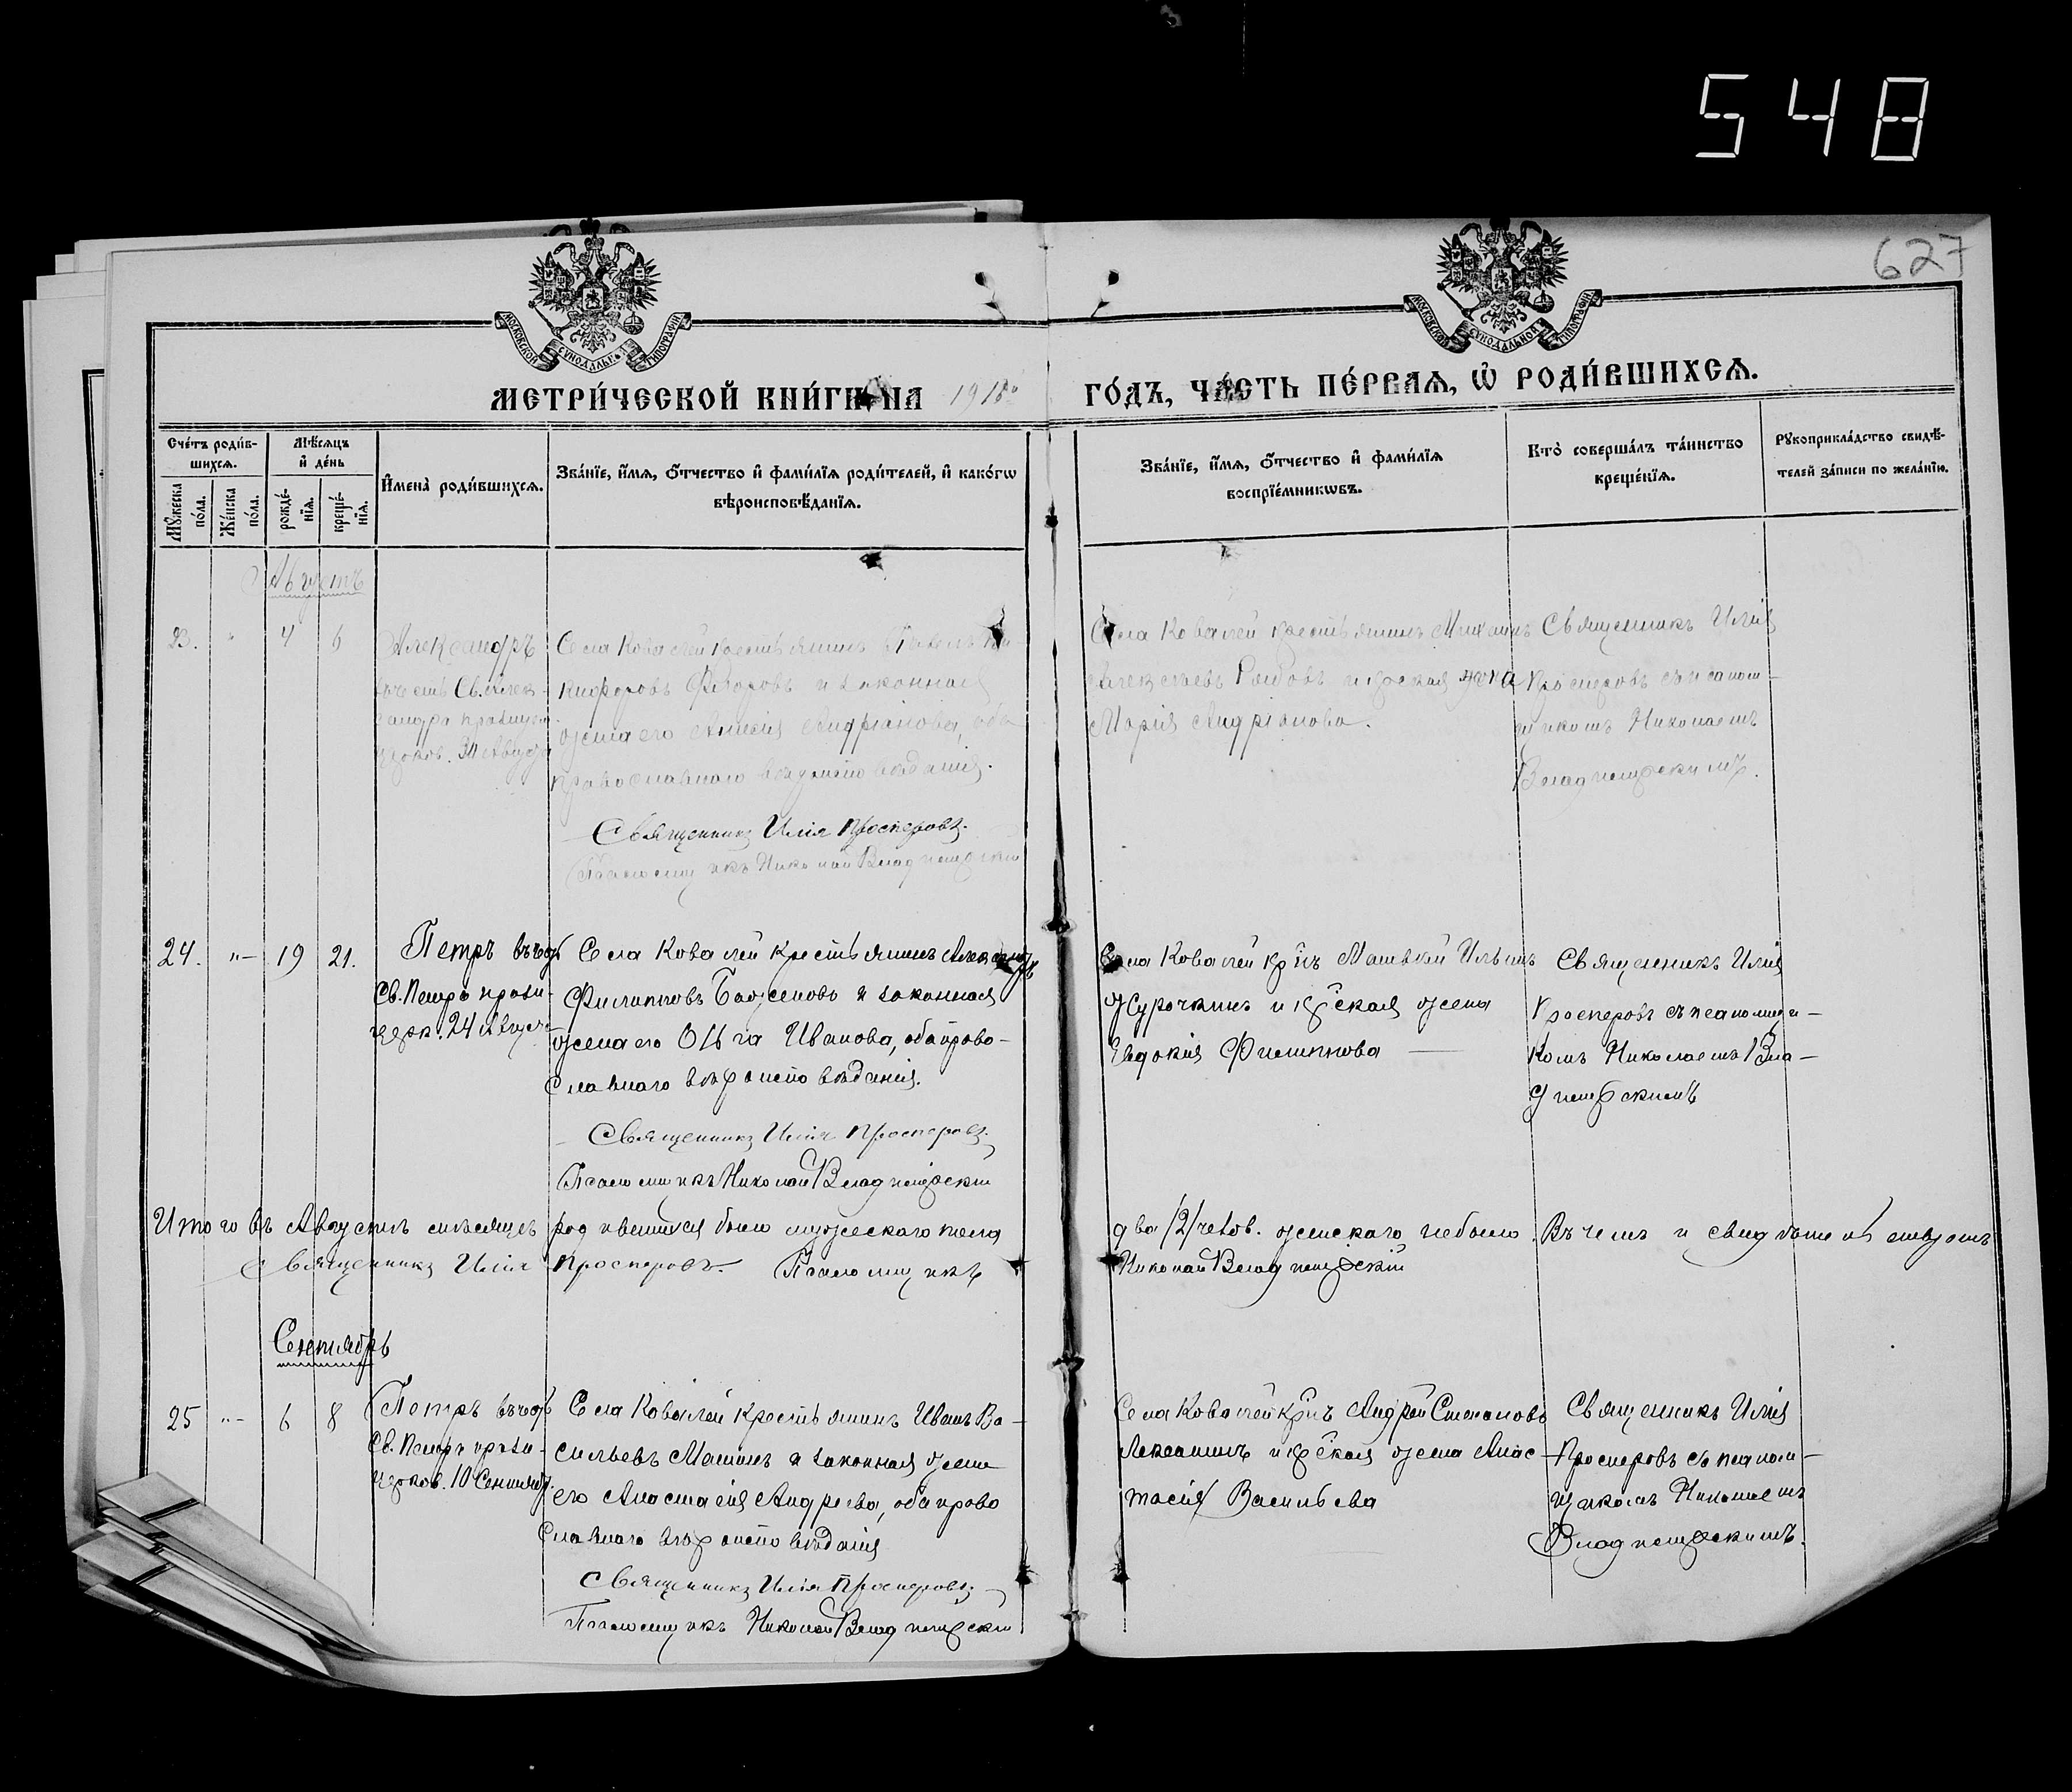 548
627
МОСКОВСКОЙ СѴНОДАЛЬНОЙ ТИПОГРАФІИ
МОСКОВСКОЙ СѴНОДАЛЬНОЙ ТИПОГРАФІИ
МЕТРИ́ЧЕСКОЙ КНИ́ГИ НА 1918 ГО́ДЪ, ЧА́СТЬ ПЕ́РВАѦ, Ѡ РОДИ́ВШИХСѦ.
Сче́тъ роди́в-
шихсѧ.
Мꙋ́жеска
по́ла.
Же́нска
по́ла.
Мѣ́сѧцъ
и҆ де́нь
рожде́-
нїѧ.
креще́-
нїѧ.
И҆мена̀ роди́вшихсѧ.
Зва́нїе, и҆́мѧ, ѻ҆́тчество и҆ фами́лїѧ роди́телей, и҆ како́гѡ
вѣроисповѣ́данїѧ.
Зва́нїе, и҆́мѧ, ѻ҆́тчество и҆ фами́лїѧ
воспрїе́мникѡвъ.
Кто̀ соверша́лъ та́инство
креще́нїѧ.
Рꙋкоприкла́дство свидѣ́-
телей за́писи по жела́нїю.
Августъ
23. " 4 6
Александръ
въ честь Св. Алек-
сандра празну
церков. 30 Августа
Села Ковалей крестьянинъ
Никифоровъ Федоровъ и законная
жена его Анисія Андріанова, оба
православнаго вѣроисповѣданія.
Священникъ Илія Просперовъ.
Псаломщикъ Николай Владипетрскій
Села Ковалей крестьянинъ Михаилъ
Алексѣевъ и кр̃ская жена
Марія Андріанова.
Священникъ Илія
Просперовъ съ псалом-
щикомъ Николаемъ
Владипетрскимъ.
24. "- 19 21.
Петръ въ чест
Св. Петра празн.
церк. 24 Август
Села Ковалей крестьянинъ Александръ
Филипповъ Баженовъ и законная
жена его Ольга Иванова, оба право-
славнаго вѣроисповѣданія.
Священникъ Илія Просперовъ.
Псаломщикъ Николай Владипетрскій
Села Ковалей кр̃нъ Матвѣй Ильинъ
Журочкинъ и кр̃ская жена
Евдокія Филиппова —
Священникъ Илія
Просперовъ съ псаломщи-
комъ Николаемъ Вла-
дипетрскимъ
Итого въ Августѣ мѣсяцѣ родившихся было мужескаго пола два /2/ челов. женскаго небыло. Въ чемъ и свидѣтельствуютъ
Священникъ Илія Просперовъ. Псаломщикъ Николай Владипетрскій
Сентябрь
25 "- 6 8
Петръ въ чест
Св. Петра празн.
церков. 10 Сентября.
Села Ковалей крестьянинъ Иванъ Ва-
сильевъ Машинъ и законная жена
его Анастасія Андреева, оба право
славнаго вѣроисповѣданія
Священникъ Илія Просперовъ.
Псаломщикъ Николай Владипетрскій
Села Ковалей кр̃нъ Андрей Степановъ
и кр̃ская жена Анас-
тасія Васильева
Священникъ Илія
Просперовъ съ псалом-
щикомъ Николаемъ
Владипетрскимъ.